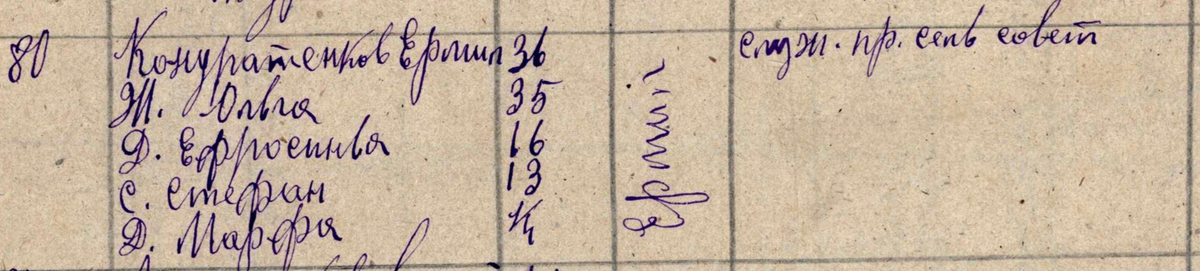 80 Кондратенков Ермил 36 служ. пр. сель совет
Ж. Ольга 35
Д. Ефросинья 16
С. Стефан 13
Д. Марфа 4
Ермил